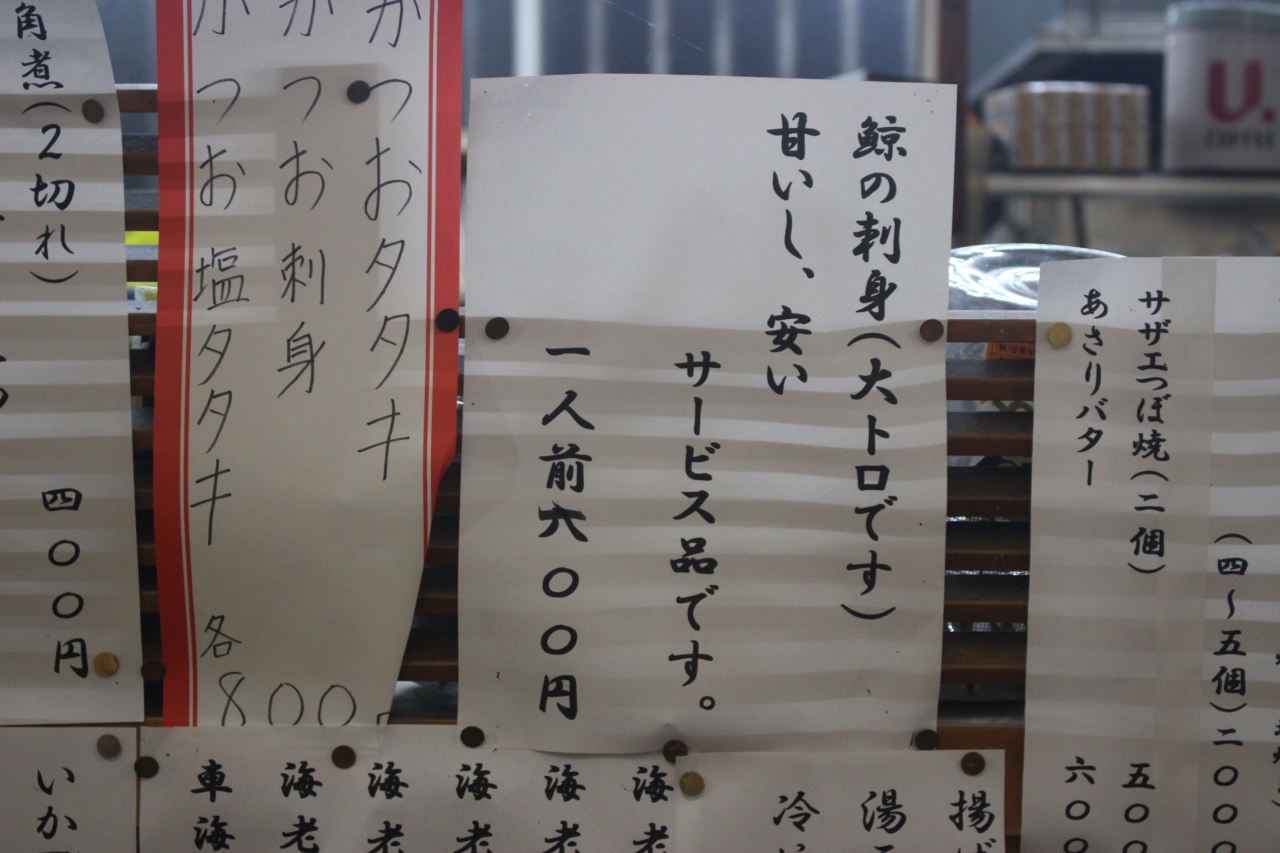 サザエつぼ焼(二個) 五〇〇
あさりバター 六〇〇
(四〜五個)二〇〇〇
鯨の刺身(大トロです)
甘いし、安い
サービス品です。
一人前六〇〇円
かつおタタキ
かつお刺身
かつお塩タタキ 各800
角煮(2切れ)
四〇〇円
揚げ
湯
冷
海老
海老
海老
海老
海老
車海
いか
U.
COFFEE